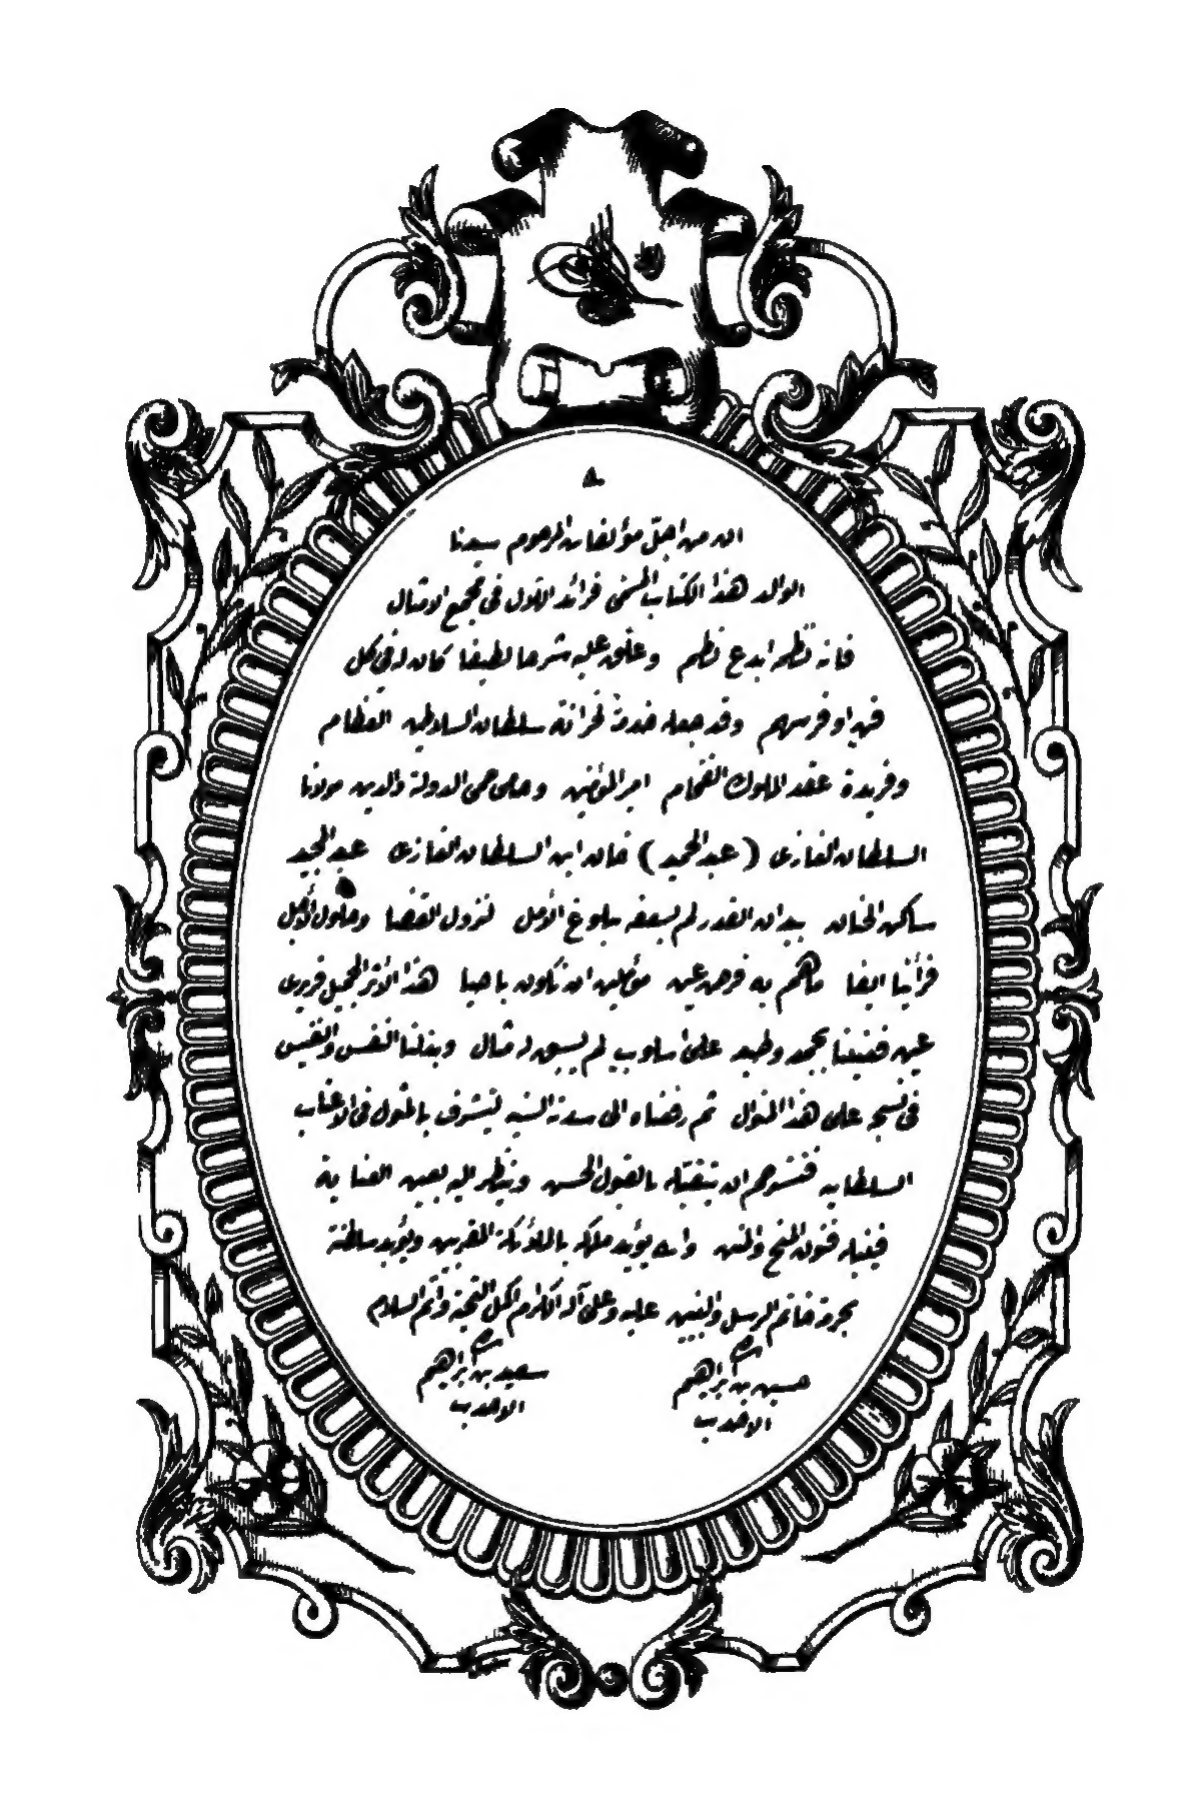 ان من اجلّ مؤلفات المرحوم سيدنا
الوالد هذا الكتاب المسمى فرائد اللآل في مجمع الامثال
فانه نظمه ابدع نظم وعلق عليه شرحا لطيفا كان له في كل
فن اوفر سهم وقد جعله خدمة لخزانة سلطان السلاطين العظام
وفريدة عقد الملوك الفخام امير المؤمنين وحامى حمى الدولة والدين مولانا
السلطان الغازى (عبد الحميد) خان ابن السلطان الغازى عبد المجيد
ساكن الجنان بيد ان القدر لم يسعفه ببلوغ الأمل لنزول القضا وحلول الأجل
فرأينا ايفا ماهم به فرض عين مؤملين ان نكون باحيا هذا الأثر الجميل قريرى
عين فضبعنا بحمد وطيد على اسلوب لم يسبق له مثال وبذلنا النفس والنفيس
في نسجه على هذا المنوال ثم رفعناه الى سدته السنيه ليتشرف بالمثول في الاعتاب
السلطانيه فنسترحم ان يتقبله بالقبول الحسن وينظر اليه بعين العناية
فينيله فنون المنح والمنن والله يؤيد ملكه بالملائكة المقربين ويؤبد سلطنته
بحرمة خاتم الرسل والنبيين عليه وعلى آله الكرام اكمل التحية واتم السلام
حسين بن ابراهيم سعيد بن ابراهيم
الاحدب الاحدب